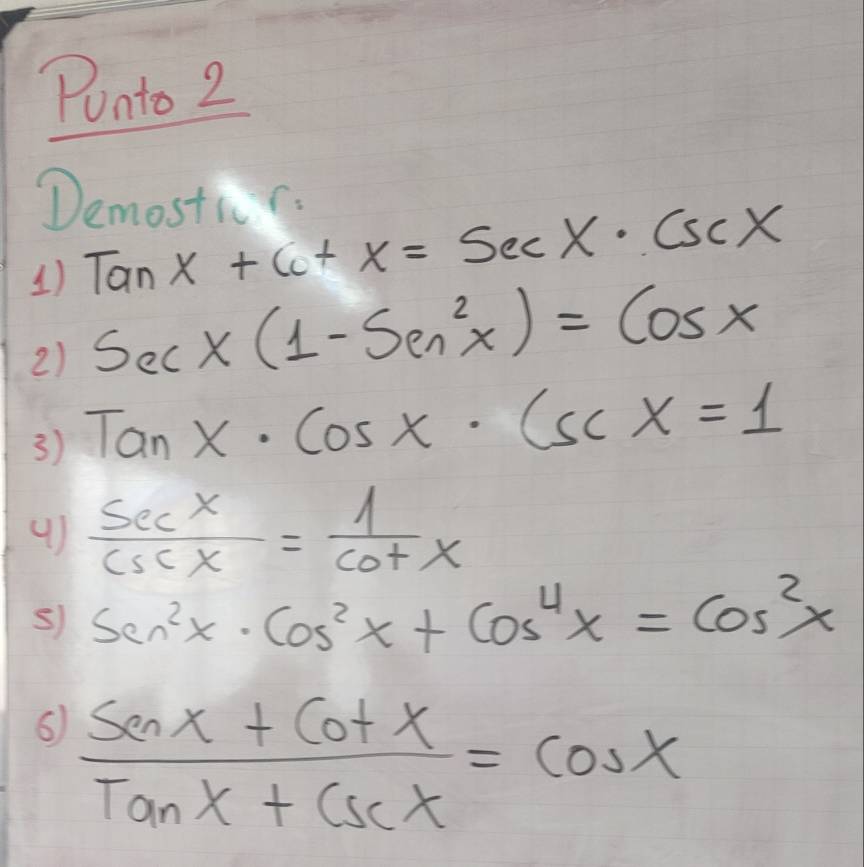 Punto 2
Demostrar:
1) Tan X + Cot X = Sec X · Csc X
2) Sec X (1 - Sen²x) = Cos x
3) Tan X · Cos X · Csc X = 1
4) Sec X / Csc X = 1 / Cot X
5) Sen²x · Cos²x + Cos⁴x = Cos²x
6) Sen X + Cot X / Tan X + Csc X = Cos X